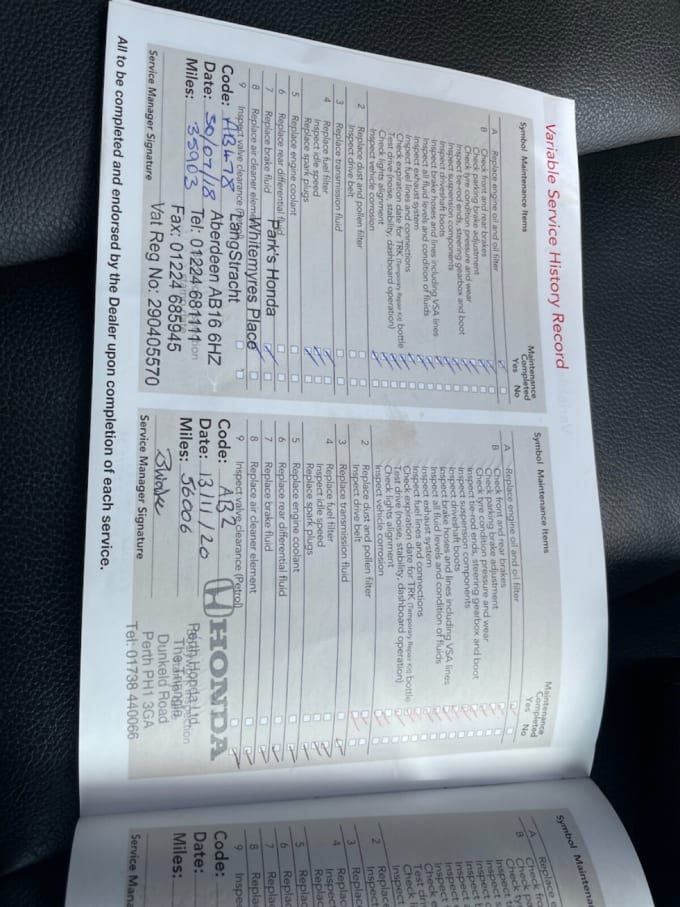 Variable Service History Record
Symbol Maintenance Items
Maintenance
Completed
Yes No
A Replace engine oil and oil filter
B Check front and rear brakes
Check parking brake adjustment
Check tyre condition pressure and wear
Inspect tie-rod ends, steering gearbox and boot
Inspect suspension components
Inspect driveshaft boots
Inspect brake hoses and lines including VSA lines
Inspect all fluid levels and condition of fluids
Inspect exhaust system
Inspect fuel lines and connections
Check expiration date for TRK (Temporary Repair Kit) bottle
Test drive (noise, stability, dashboard operation)
Check lights alignment
Inspect vehicle corrosion
2 Replace dust and pollen filter
Inspect drive belt
3 Replace transmission fluid
4 Replace fuel filter
Inspect idle speed
Replace spark plugs
5 Replace engine coolant
6 Replace rear differential fluid
7 Replace brake fluid
8 Replace air cleaner element
9 Inspect valve clearance (Petrol)
Park's Honda
Whitemyres Place
LangStracht
Aberdeen AB16 6HZ
Tel: 01224 681111
Fax: 01224 685945
Vat Reg No: 290405570
Code: AB478
Date: 30/07/18
Miles: 35903
Service Manager Signature
Symbol Maintenance Items
Maintenance
Completed
Yes No
A Replace engine oil and oil filter
B Check front and rear brakes
Check parking brake adjustment
Check tyre condition pressure and wear
Inspect tie-rod ends, steering gearbox and boot
Inspect suspension components
Inspect driveshaft boots
Inspect brake hoses and lines including VSA lines
Inspect all fluid levels and condition of fluids
Inspect exhaust system
Inspect fuel lines and connections
Check expiration date for TRK (Temporary Repair Kit) bottle
Test drive (noise, stability, dashboard operation)
Check lights alignment
Inspect vehicle corrosion
2 Replace dust and pollen filter
Inspect drive belt
3 Replace transmission fluid
4 Replace fuel filter
Inspect idle speed
Replace spark plugs
5 Replace engine coolant
6 Replace rear differential fluid
7 Replace brake fluid
8 Replace air cleaner element
9 Inspect valve clearance (Petrol)
Code: AB2
Date: 13/11/20
Miles: 56006
HONDA
Perth Honda Ltd
The Triangle
Dunkeld Road
Perth PH1 3GA
Tel: 01738 440066
Service Manager Signature
All to be completed and endorsed by the Dealer upon completion of each service.
Symbol
A
B
2
3
4
5
6
7
8
9
Code:
Date:
Miles: